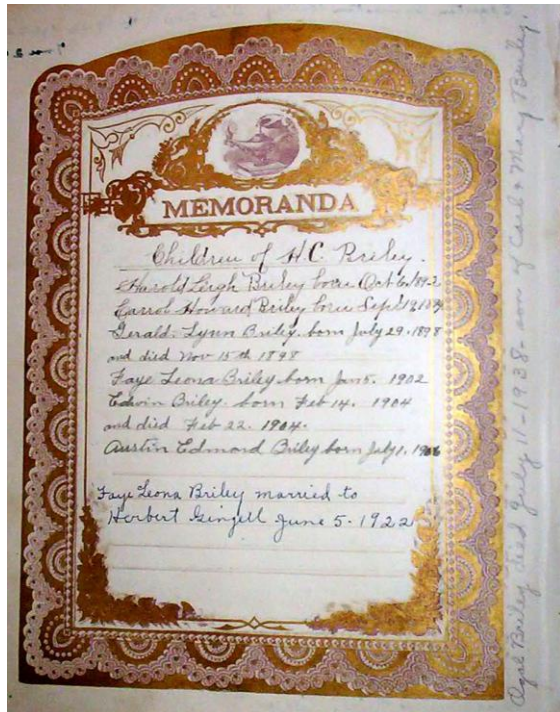 MEMORANDA
Children of H.C. Briley.
Harold Leigh Briley born Oct 6, 1892
Carrol Howard Briley born Sept 19,
Gerald Lynn Briley born July 29 - 1898
and died Nov 15th 1898
Faye Leona Briley born Jan 5. 1902
Edwin Briley. born Feb 14. 1904
and died Feb 22. 1904.
Austin Edmord Briley born July 1.
Faye Leona Briley married to
Herbert Gingell June 5 - 1922
Briley died July 11 - 1938 - son of Carl & Mary Briley.